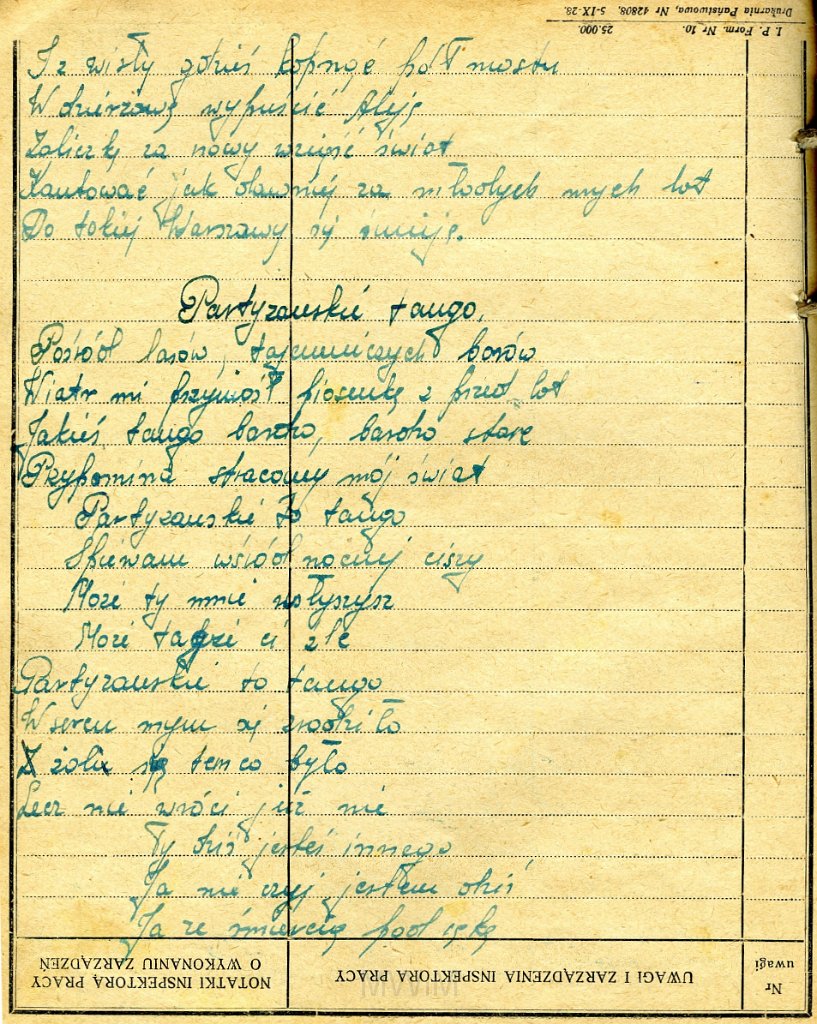 I z wisły gdzieś kopnąć pół mostu
W dzierżawę wypuścić Aleję
Zaliczkę za nowy wziąść świat
Kantować jak dawniej za młodych mych lat
Do takiej Warszawy się śmieję.
Partyzanskie tango.
Pośród lasów, tajemniczych borów
Wiatr mi przyniósł piosenkę z przed lat
Jakieś tango bardzo, bardzo stare
Przypomina stracony mój świat
Partyzanskie to tango
Spiewam wśród nocnej ciszy
Może ty mnie usłyszysz
Może także ci źle
Partyzanskie to tango
W sercu mym się zrodziło
Z żalu tem co było
Lecz nie wróci już nie
Ty dziś jesteś innego
Ja nie czyj jestem dziś
Ja ze śmiercią pod rękę
NOTATKI INSPEKTORA PRACY O WYKONANIU ZARZĄDZEŃ
UWAGI I ZARZĄDZENIA INSPEKTORA PRACY
Nr uwagi
I. P. Form. Nr 10. 25.000.
Drukarnia Państwowa, Nr 42808. 5-IX-28.
MWM